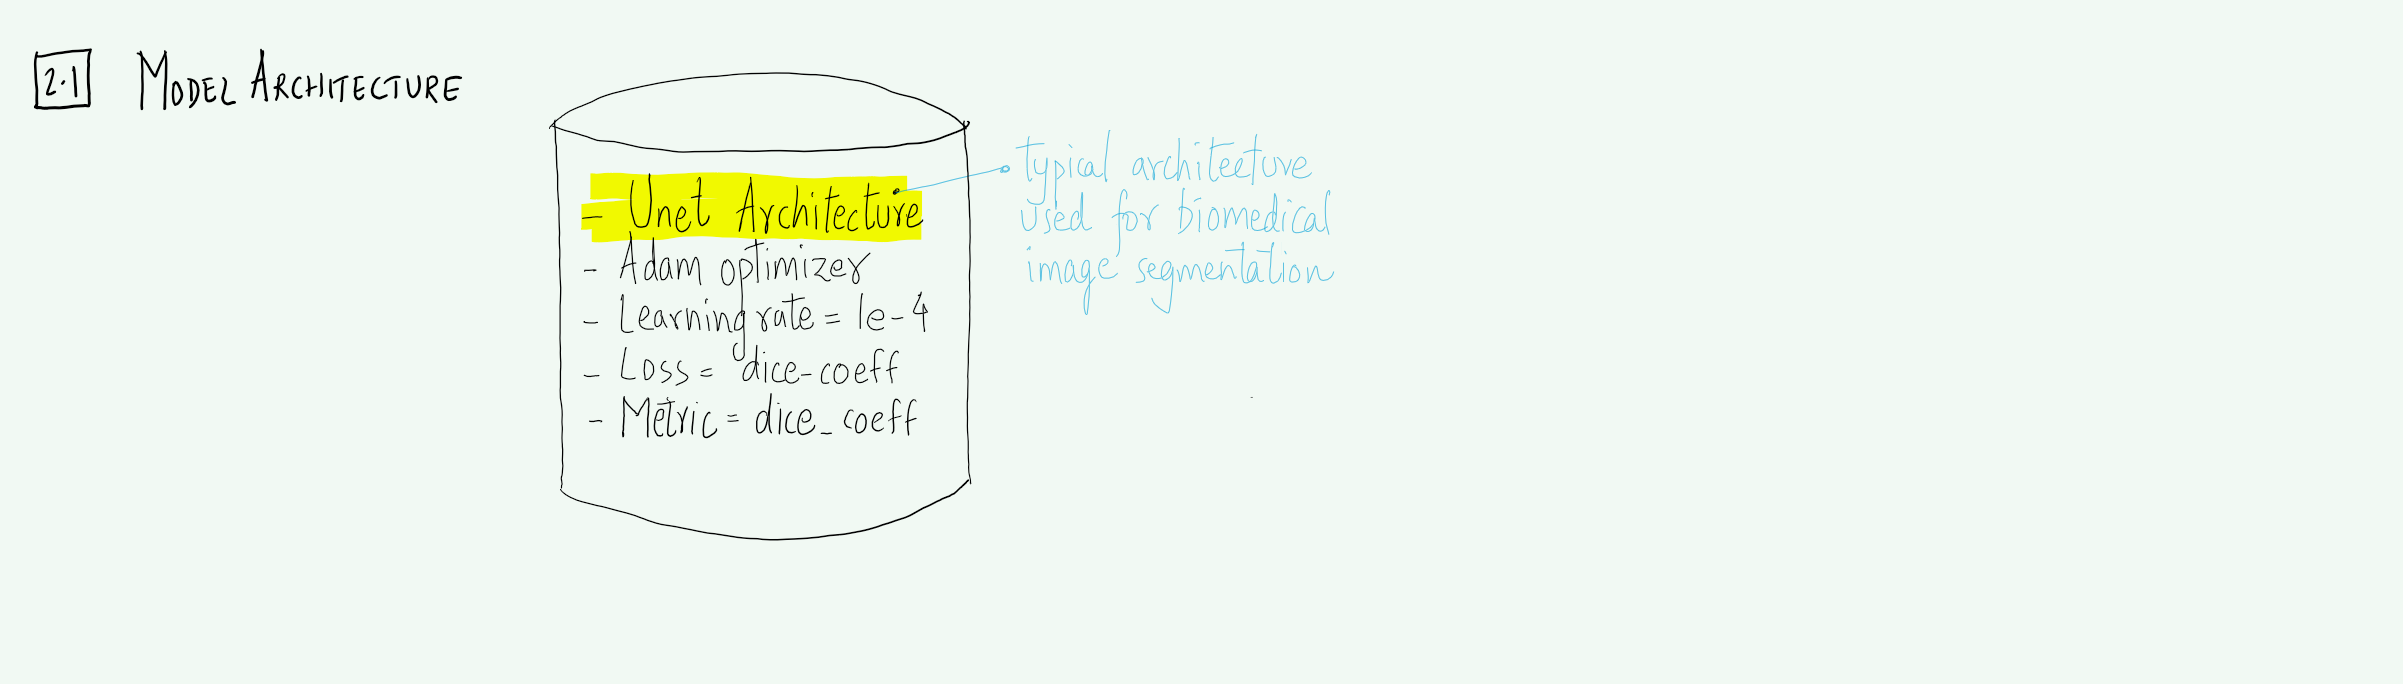 2.1 MODEL ARCHITECTURE
- Unet Architecture
- Adam optimizer
- Learning rate = 1e-4
- Loss = dice-coeff
- Metric = dice_coeff
typical architecture
used for biomedical
image segmentation